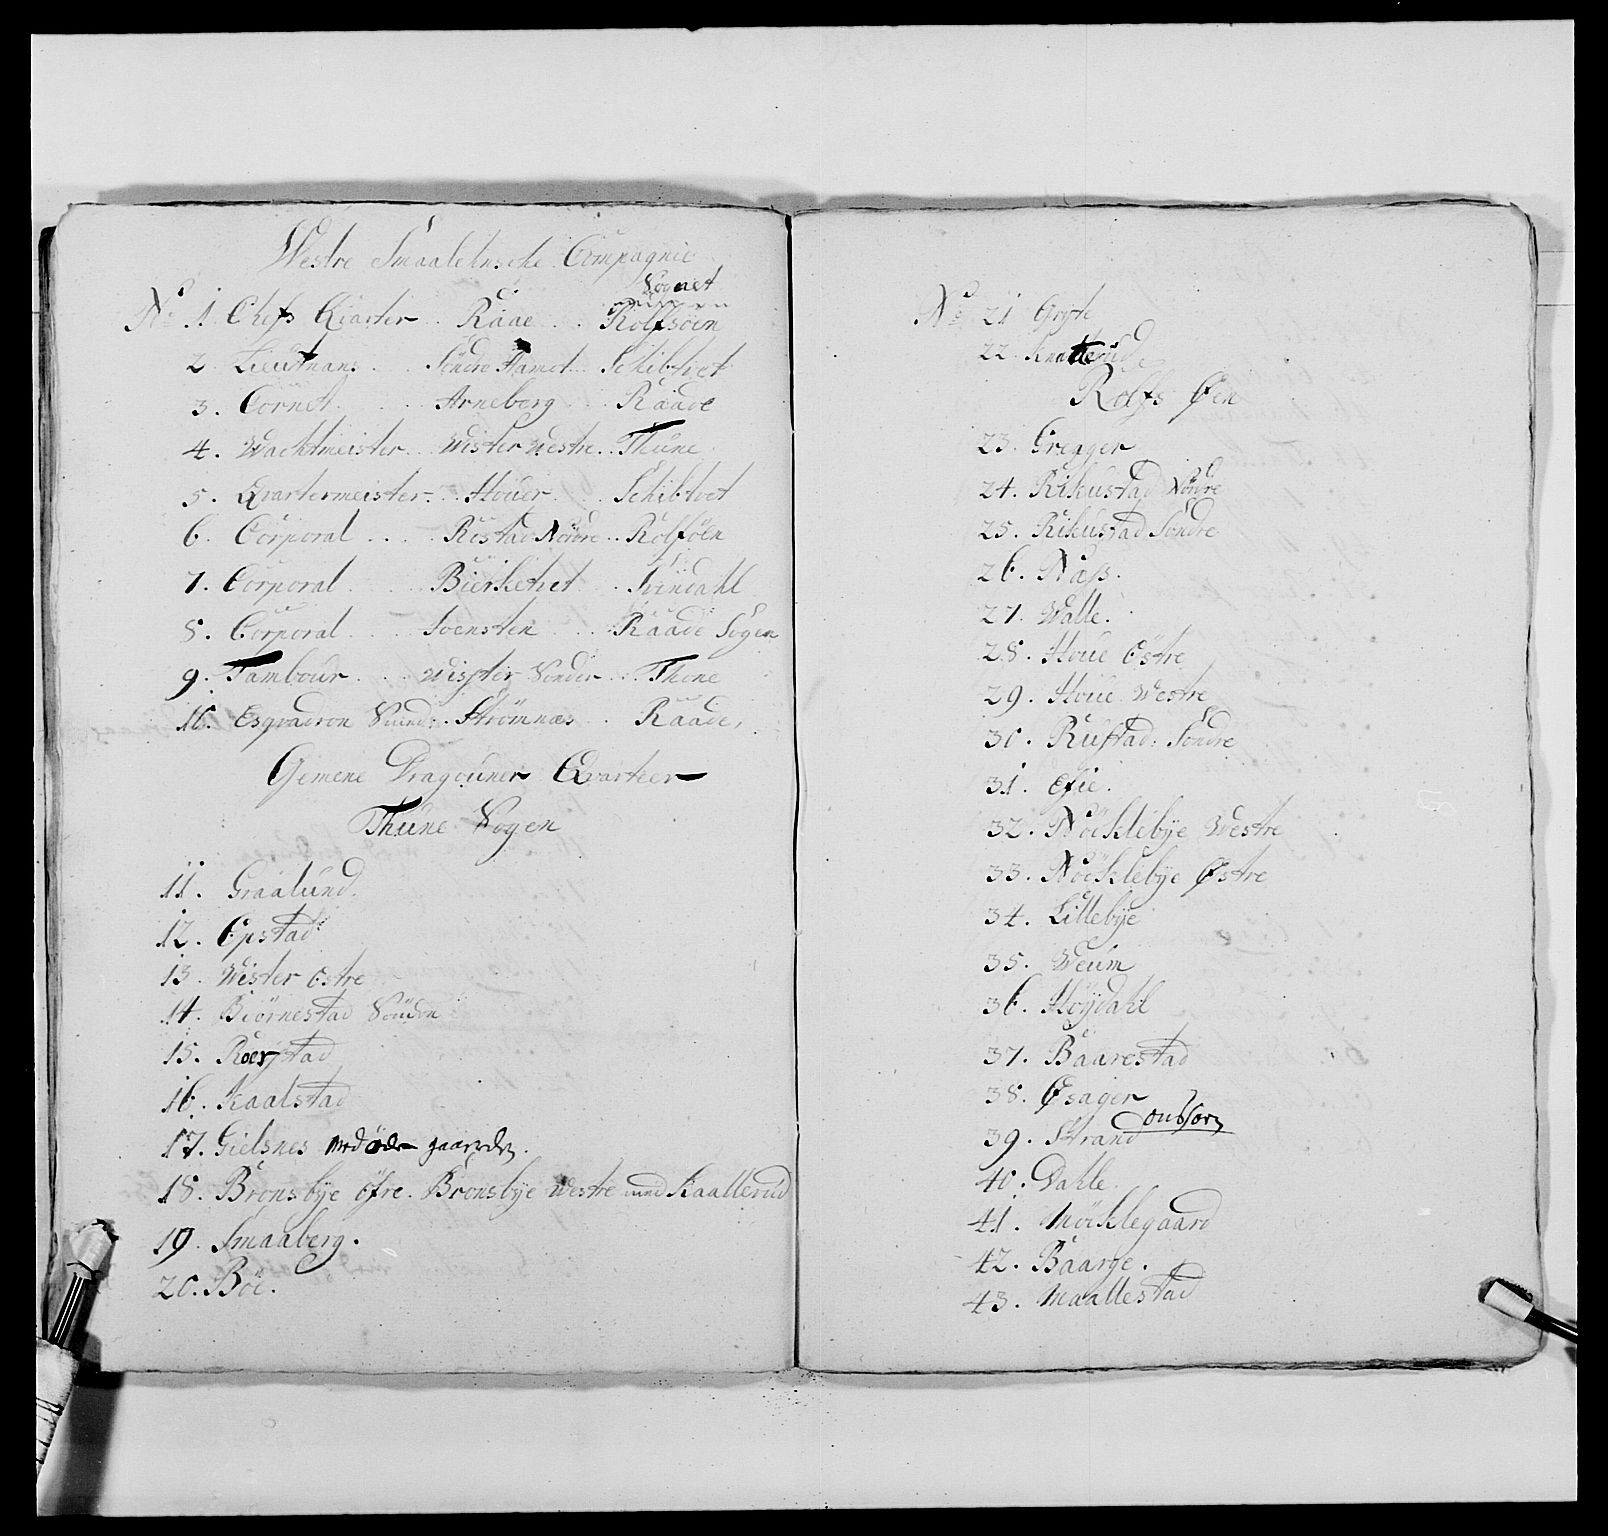 Westre Smaalehnsche Compagnie
Sognet
No 1. Chefs Qvarter . . Raae . . Rolfsöen
2. Lieutnans . . Söndre Hamot . . Schibtvet
3. Cornet . . Arneberg . . Raade
4. Wachtmeister . . Wister Westre . . Thune
5. Qvartermeister . . Houer . . Schibtvet
6. Corporal . . . . Rostad Nordre . . Rolföen
7. Corporal . . Bierketvet . . Svindahl
8. Corporal . . . Soensten . . . Raade Sogen
9. Tambour . . . Wister Sönder . . Thune
10. Esqvadron Smed . . Strömnæs . . Raade.
Gemene Dragouner Qvarteer
Thune Sogen
11. Graalund.
12. Opstad
13. Wister Ostre
14. Biörnestad Söndre
15. Roerstad
16. Kaalstad
17. Gielsnes med öde gaarden.
18. Bronsbye öfre. Bronsbye Westre med Kaallerud
19. Smaaberg.
20. Böe.
No 21 Gryte
22. Knatterud
Rolfs Øen
23. Gregger
24. Rikustad Nordre
25. Rikustad Söndre
26. Næss.
27. Walle.
28. Houe Östre
29. Houe Westre
30. Rustad: Söndre
31. Efie.
32. Nöcklebye Westre
33. Nöcklebye Østre
34. Lillebye
35. Weum
36. Höydahl
37. Baarestad
38. Øsager
39. Strand
40. Dahle.
41. Möcklegaard
42. Baarge.
43. Maallestad